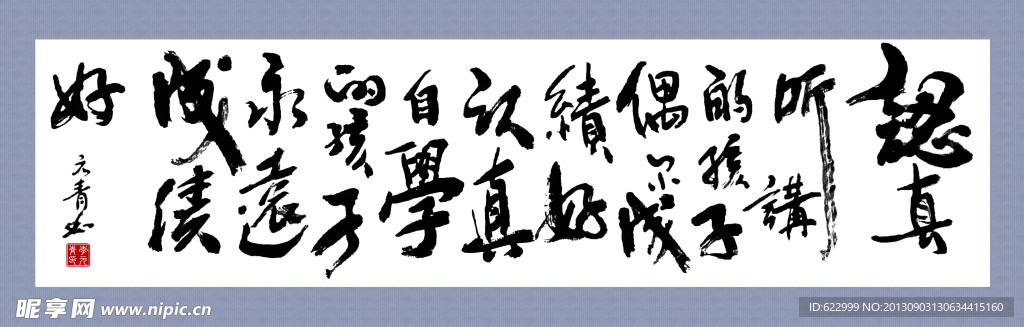 認真
听講
的孩子
偶尔成
績好
认真
自學
的孩子
永遠
成績
好
元青书
昵享网 www.nipic.cn
ID:622999 NO:20130903130634415160